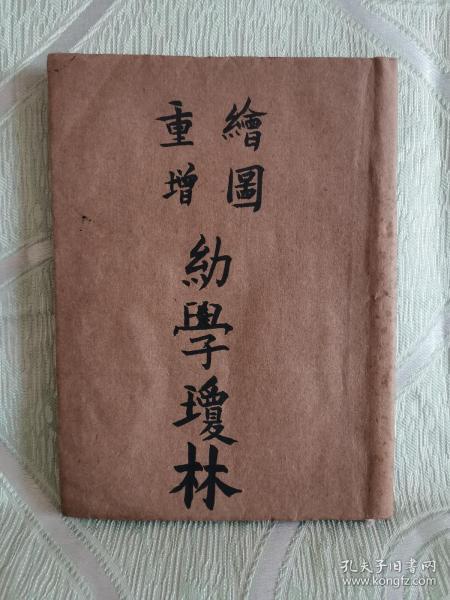 繪圖
重增
幼學瓊林
孔夫子旧书网
www.kongfz.com